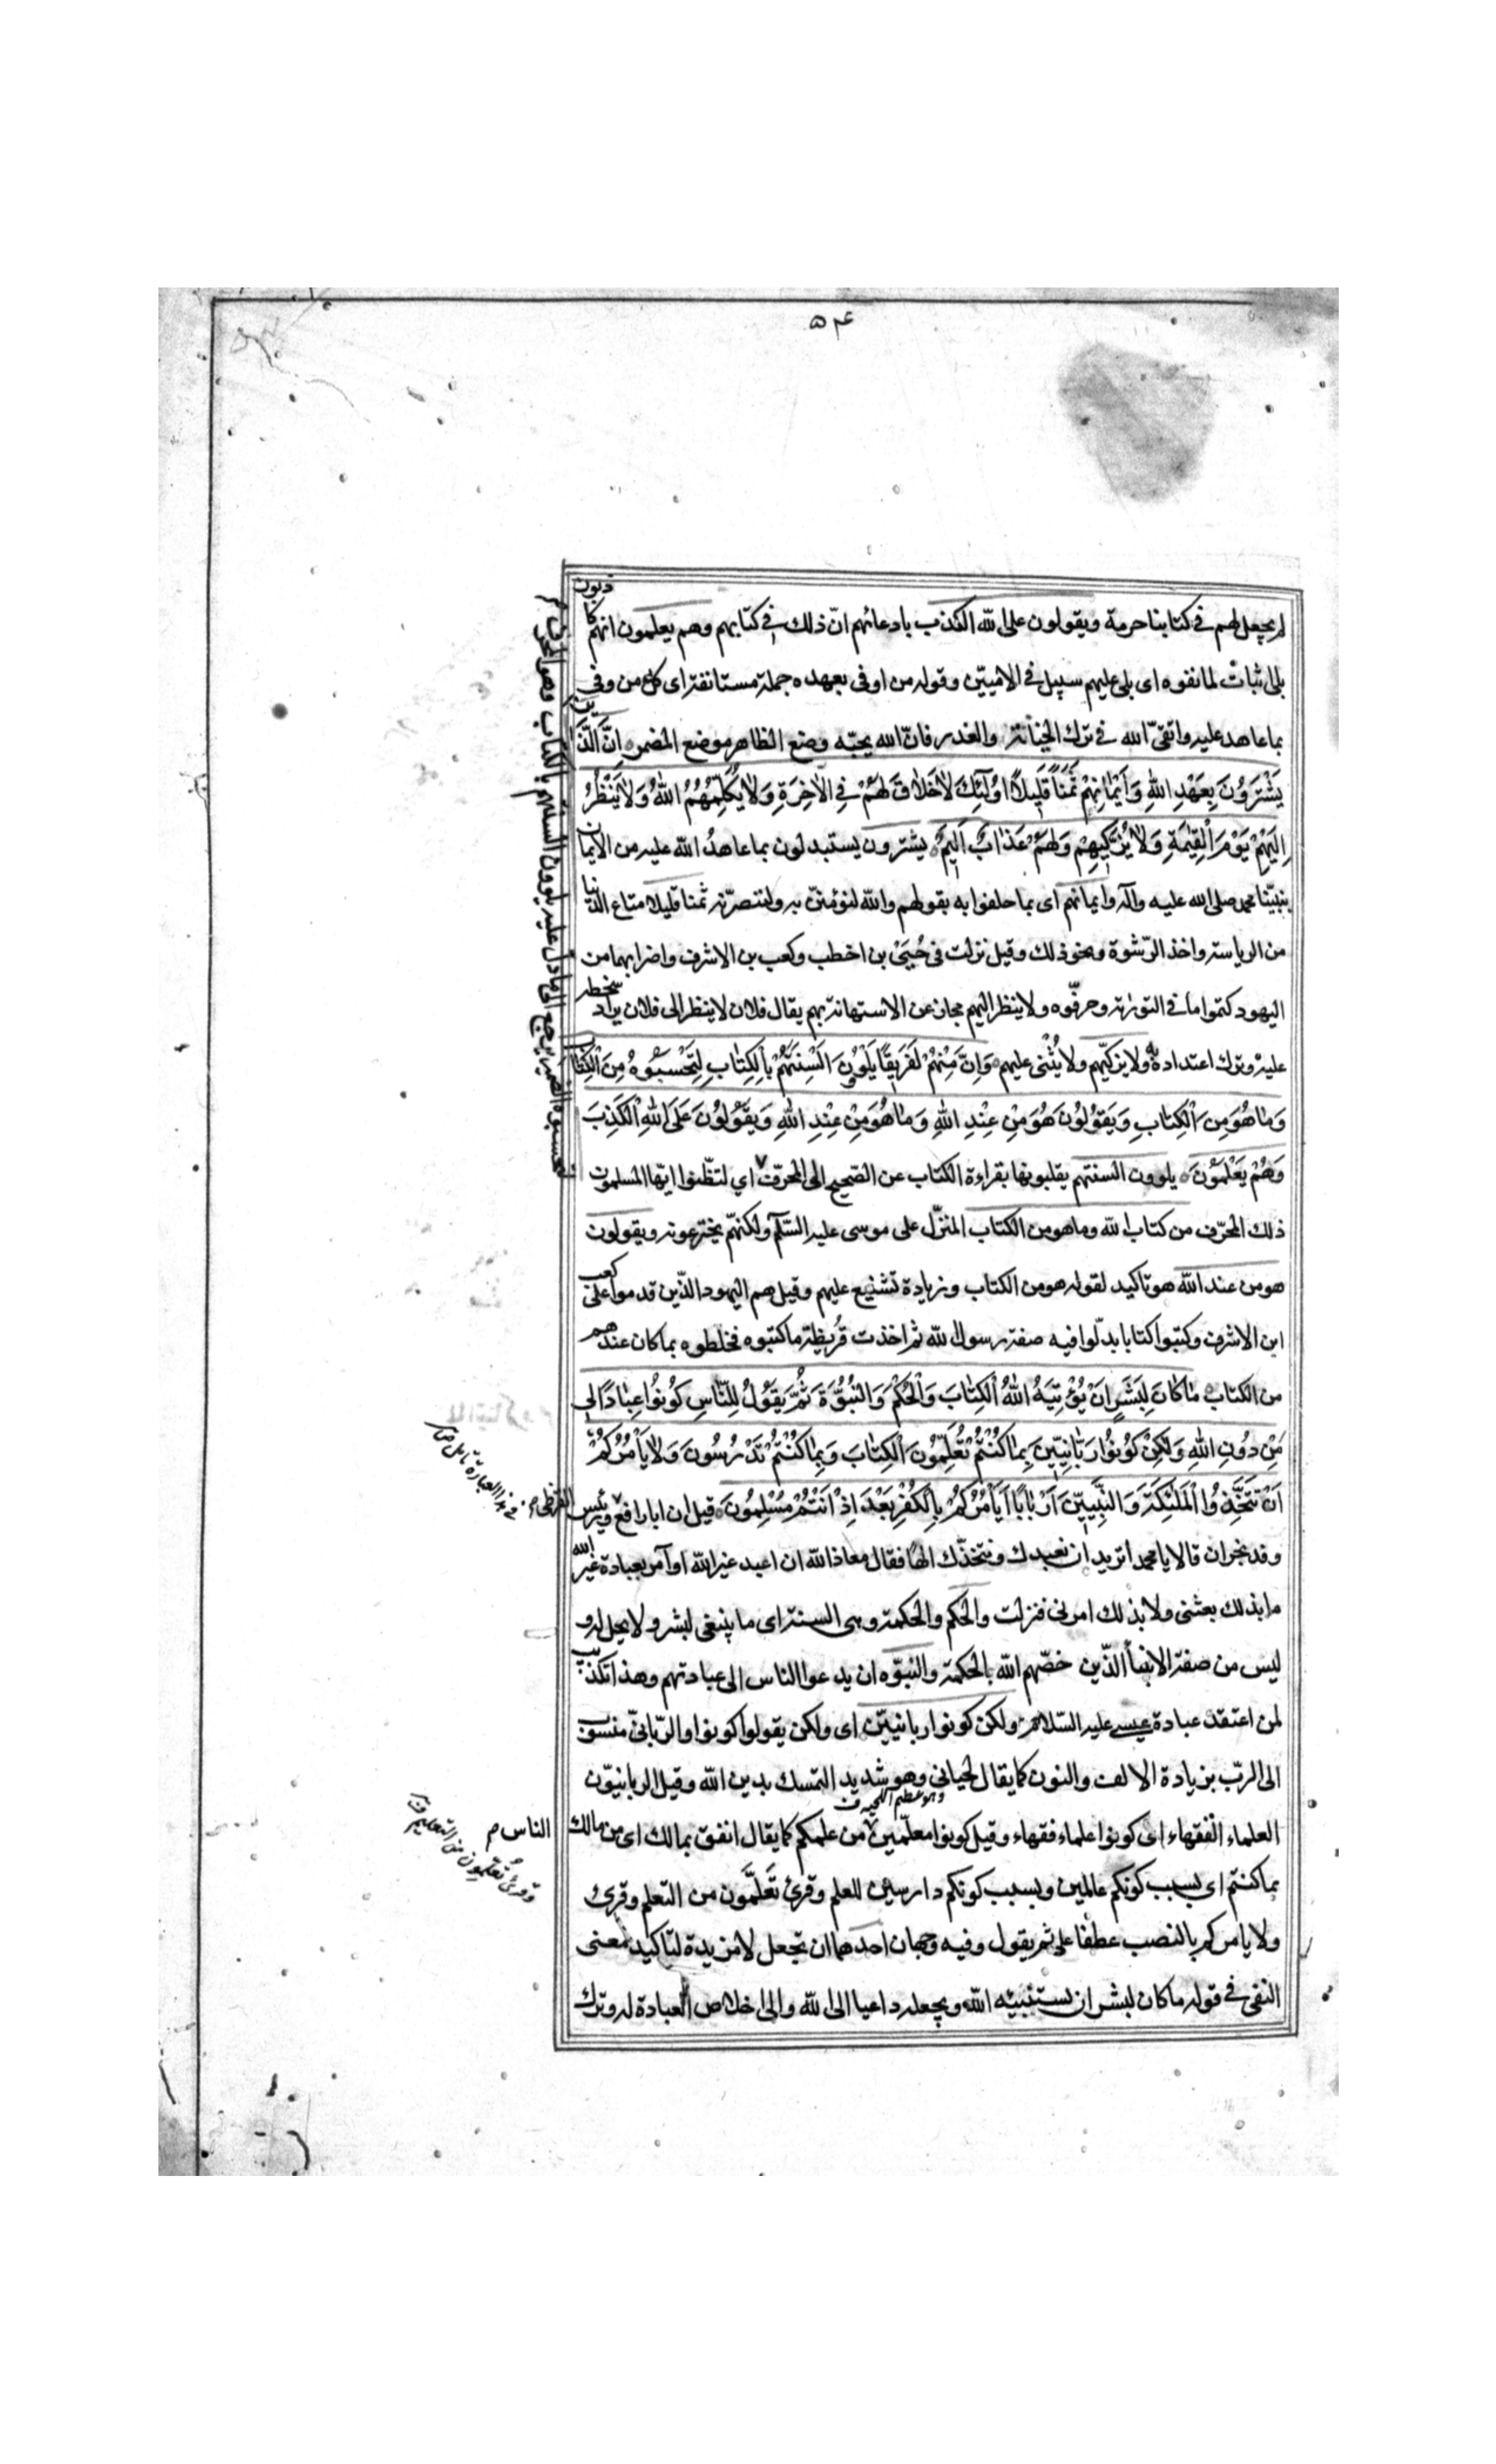 ۵۴
لم يجعل لهم في كتابنا حرمة ويقولون على الله الكذب بادعائهم انّ ذلك في كتابهم وهم يعلمون انهم كاذبون
بلى اثبات لما نفوه اى بلى عليهم سبيل في الاميّين وقوله من اوفى بعهده جملة مستانفة اى كل من وفى
بما عاهد عليه واتقى الله في ترك الخيانة والغدر فانّ الله يحبّه وضع الظاهر موضع المضمر اِنَّ الَّذين
يَشْتَرُوُنَ بِعَهْدِ اللهِ وَاَيْمٰانِهِمْ ثَمَناً قَلِيلاً اوُلٰٓئِكَ لاٰ خَلاٰقَ لَهُمْ فِي الْاٰخِرَةِ وَلاٰ يُكَلِّمُهُمُ اللهُ وَلاٰ يَنْظُرُ
اِلَيْهِمْ يَوْمَ الْقِيٰمَةِ وَلاٰ يُزَكّيهِمْ وَلَهُمْ عَذٰابٌ اَلِيمٌ يشترون يستبدلون بما عاهدُ الله عليه من الايمان
بنبيّنا محمد صلى الله عليه وآله وايمانهم اى بما حلفوا به بقولهم والله لنؤمننّ به ولننصرنّه ثمنا قليلا متاع الدنيا
من الرياسة واخذ الرّشوة ونحو ذلك وقيل نزلت فى حُيَىّ بن اخطب وكعب بن الاشرف واضرابهما من
اليهود كتموا ما في التورٰية وحرفّوه ولا ينظر اليهم مجاز عن الاستهانة بهم يقال فلان لا ينظر الى فلان يراد سخطه
عليه وترك اعتداده به ولا يزكّيهم ولا يُثنى عليهم وَاِنَّ مِنْهُمْ لَفَرِيقًا يَلْوُنَ اَلْسِنَتَهُمْ بِالْكِتٰابِ لِتَحْسَبُوهُ مِنَ الْكِتٰابِ
وَمٰا هُوَ مِنَ الْكِتٰابِ وَيَقوُلوُنَ هُوَ مِنْ عِنْدِ اللهِ وَمٰا هُوَ مِنْ عِنْدِ اللهِ وَيَقُولُونَ عَلَى اللهِ الْكَذِبَ
وَهُمْ يَعْلَمُوْنَ يلوون السنتهم يقلبونها بقراءة الكتاب عن الصّحيح الى المحرّف اي لتظّنوا ايّها المسلمون
ذلك المحرّف من كتاب الله وما هو من الكتاب المنزّل على موسى عليه السّلم ولكنهّم يخترعونه ويقولون
هو من عند الله هو تاكيد لقوله هو من الكتاب وزيادة تشنيع عليهم وقيل هم اليهود الذّين قدموا على كعب
ابن الاشرف وكتبوا كتابا بدلّوا فيه صفة رسول الله ثم اخذت قُريظة ما كتبوه فخلطوه بما كان عندهم
من الكتاب مٰا كٰانَ لِبَشَرٍ اَنْ يُؤْتِيَهُ اللهُ الْكِتٰابَ وَالْحُكْمَ وَالنُّبُوَّةَ ثُمَّ يَقُولُ لِلنّٰاسِ كُونُوا عِبٰادًا لِي
مِنْ دُونِ اللهِ وَلٰكِنْ كُونُوُا رَبّٰانِيِّينَ بِمٰا كُنْتُمْ تُعَلِّمُونَ الْكِتٰابَ وَبِمٰا كُنْتُمْ تَدْرُسُونَ وَلاٰ يَأْمُرَكُمْ
اَنْ تَتَّخِذُوا الْمَلٰئِكَةَ وَالنَّبِيّينَ اَرْبٰابًا اَيَأْمُرُكُمْ بِالْكُفْرِ بَعْدَ اِذْ اَنْتُمْ مُسْلِمُونَ قيل ان ابا رافع القرظى ورئيس
وفد نجران قالا يا محمد اتريد ان نعبدك ونتخذّك الهًا فقال معاذ الله ان اعبد غير الله او آمر بعبادة غير الله
ما بذلك بعثنى ولا بذلك امرنى فنزلت والحكم والحكمة وهى السنة اى ما ينبغى لبشر ولا يحل له و
ليس من صفة الانبيأ الذّين خصّهم الله بالحكمة والنبوّه ان يدعوا الناس الى عبادتهم وهذا تكذيب
لمن اعتقد عبادة عيسى عليه السّلام ولكن كونوا ربانييّن اى ولكن يقولوا كونوا والرّبانىّ منسوب
الى الربّ بزيادة الالف والنون كما يقال لحيانى وهو شديد التمسك بدين الله وقيل الربانيوّن
وهو عظيم اللحية
العلماء الفقهاء اى كونوا علماء فقهاء وقيل كونوا معلّمين الناس من علمكم كما يقال انفق بمالك اى من مالك
بما كنتم اى بسبب كونكم عالمين وبسبب كونكم دارسين للعلم وقرئ تَعَلَّمون من التعلم وقرئ
ولا يامركم بالنصب عطفا على ثم يقول وفيه وجهان احدهما ان تجعل لا مزيدة لتاكيد معنى
النفى في قوله ما كان لبشر ان يستنبئه الله ويجعله داعيا الى الله والى اخلاص العبادة له وترك
لتحسبوه الضمير يرجع الى ما دل عليه يلوون السنتهم بالكتاب وهو المحرف
وقرئ تُعَلِّمون من التعليم